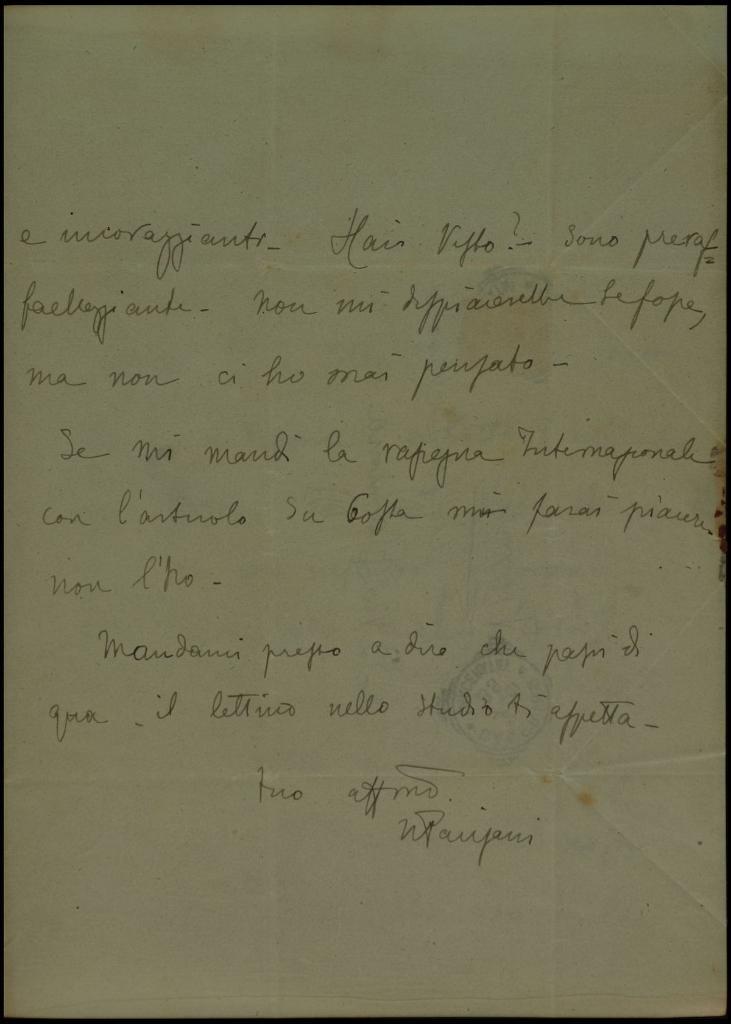 e incoraggiante_ Hai Visto? – Sono preraf=
faelleggiante – non mi dispiacerebbe se fosse,
ma non ci ho mai pensato –
Se mi mandi la rassegna Internazionale
con l'articolo su Costa mi farai piacere.
non l'ho –
Mandami presto a dire che passi di
qua – il lettino nello studio ti aspetta –
tuo affmo.